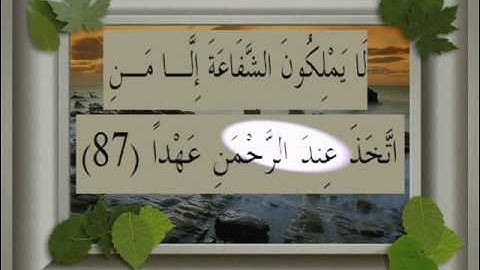 لَا يَمْلِكُونَ الشَّفَاعَةَ إِلَّا مَنِ
اتَّخَذَ عِندَ الرَّحْمَنِ عَهْداً (87)